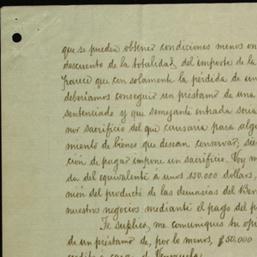 que se pueden obtener condiciones menos on
descuento de la totalidad del importe de la
parece que con solamente la pérdida de un
deberíamos conseguir un préstamo de una
sentenciado y que semejante entrada seria
nor sacrificio del que causaria para algu
miento de bienes que desean conservar, si
ción de pagar impone un sacrificio. Voy
da del equivalente a unos 150.000 dollars,
nión del producto de las demasias del
nuestros negocios mediante el pago del p
Te suplico, me comuniques tu op
de un préstamo de, por lo menos, $50.000